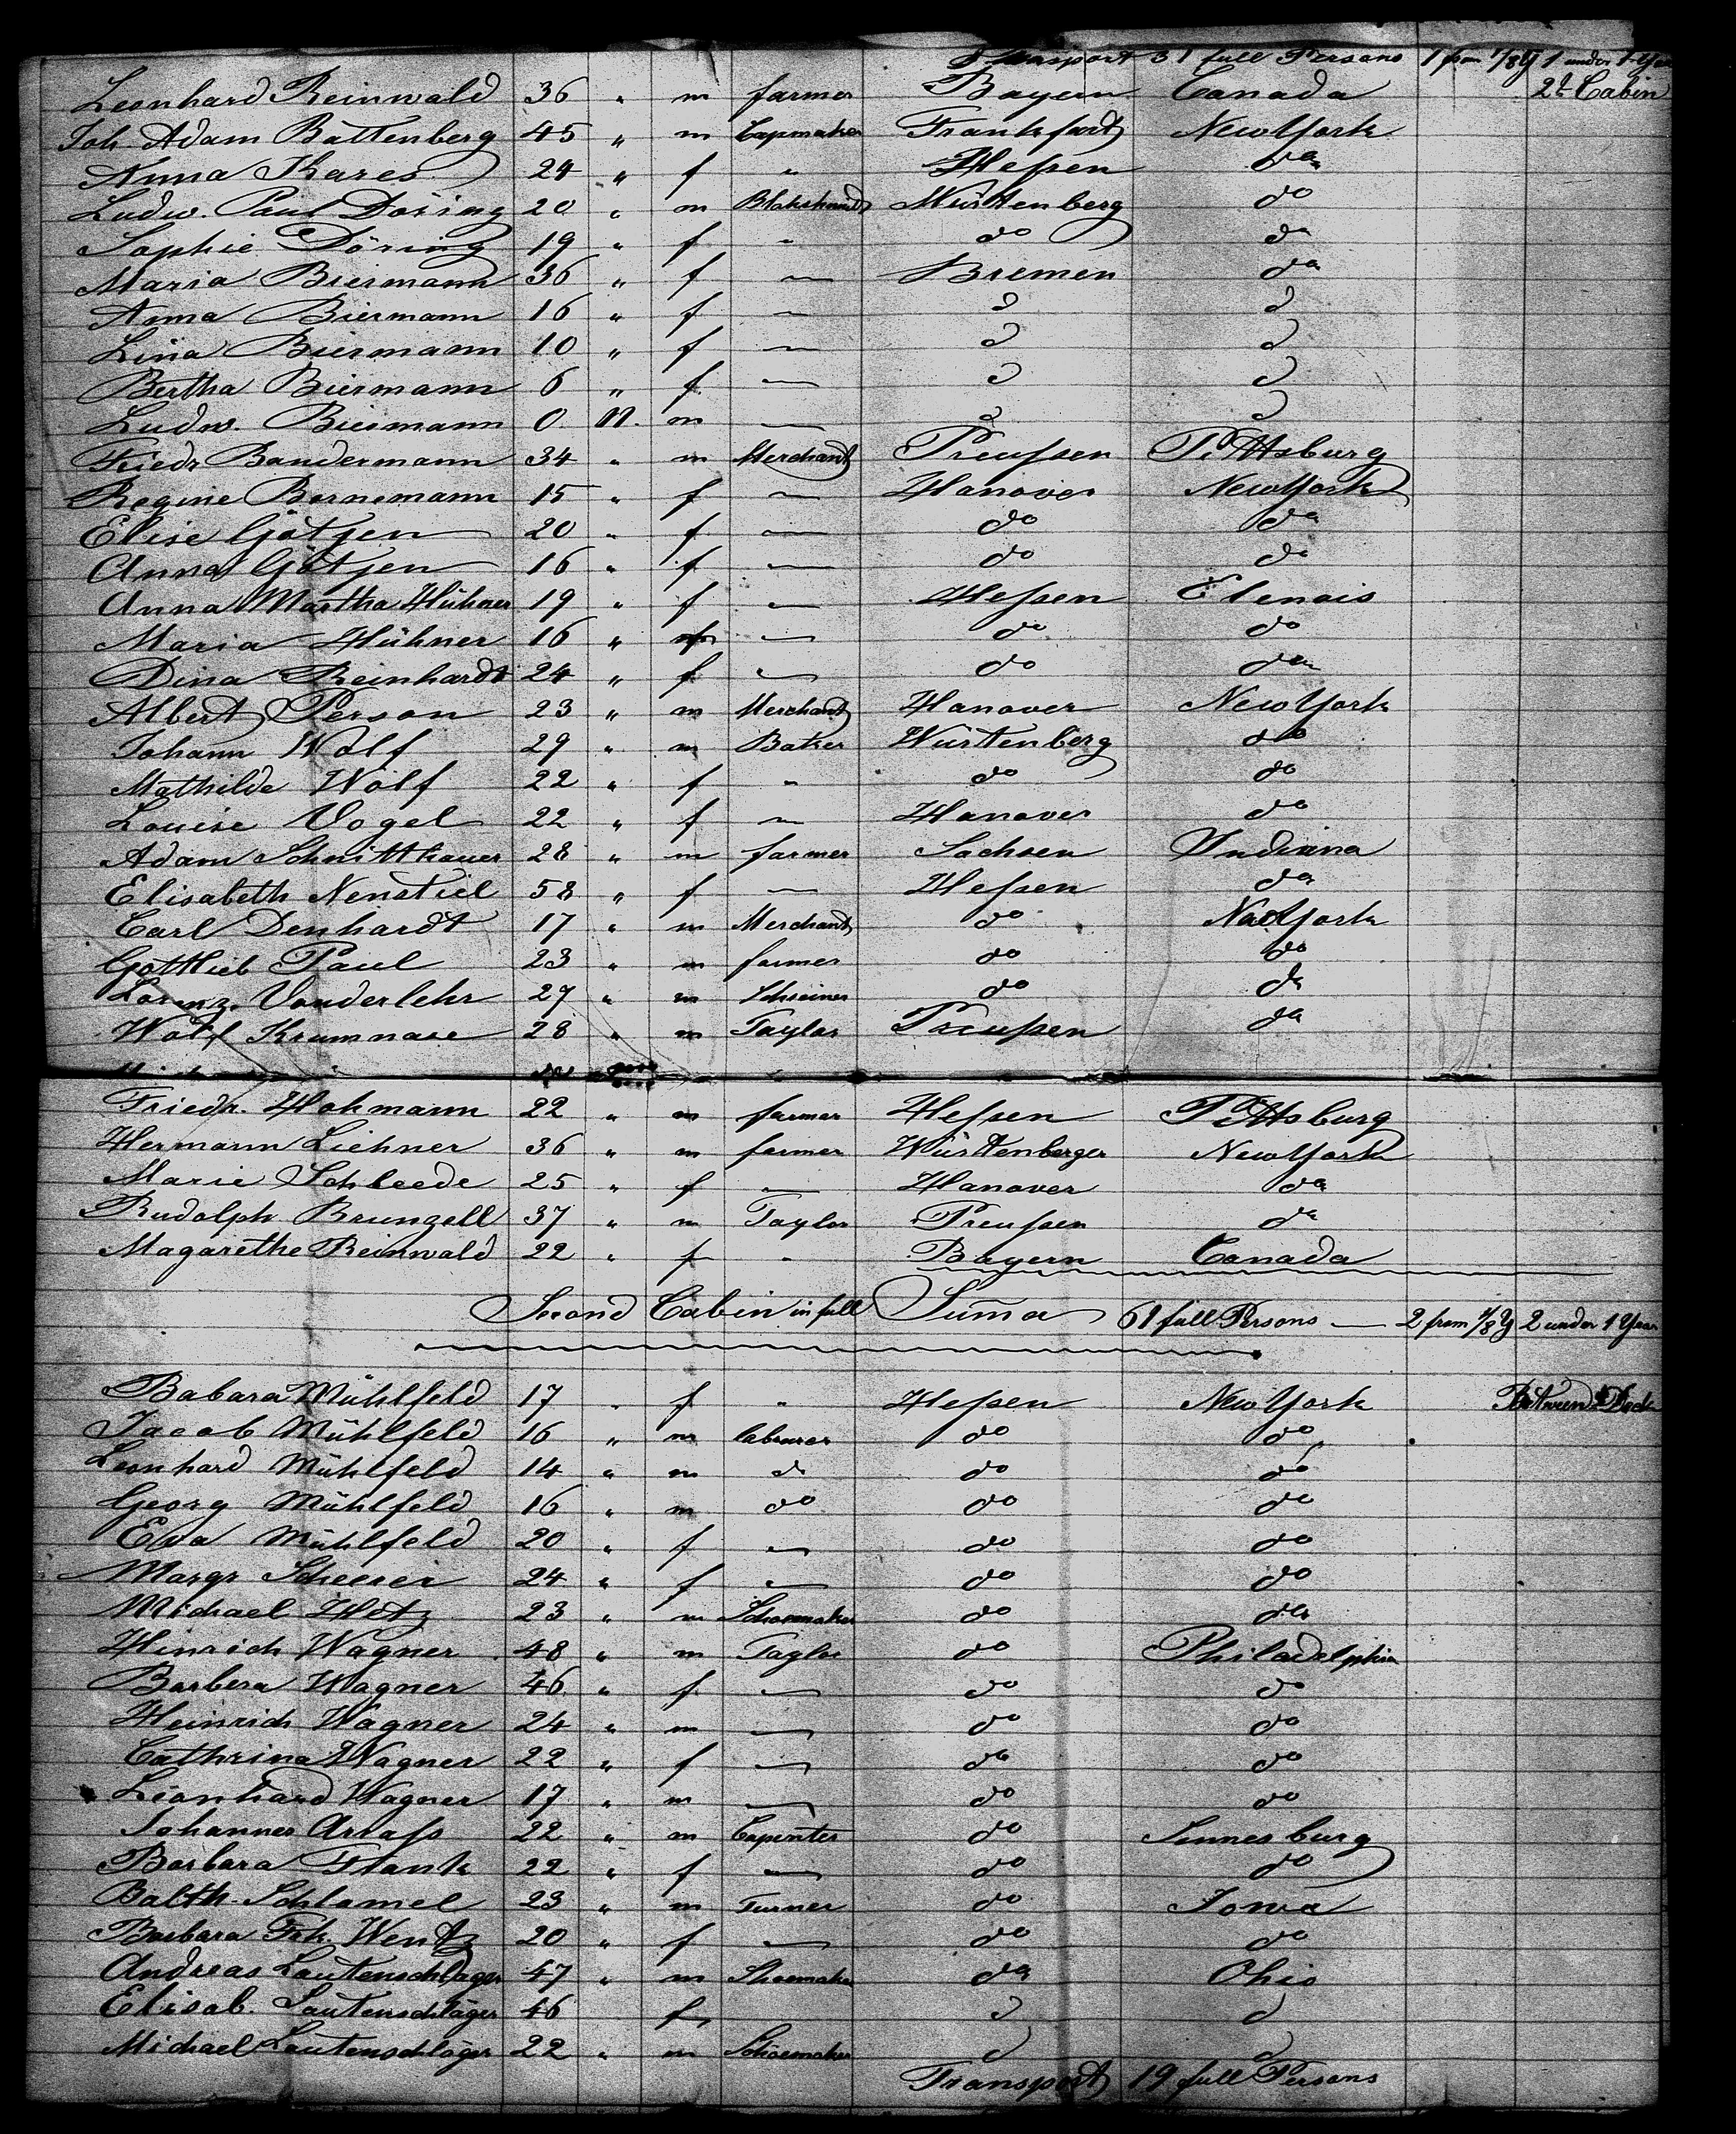 Transport 31 full Persons 1 from 1/8 Y 1 under 1 Year
Leonhard Reinwald 36 " m farmer Bayern Canada 2d Cabin
Joh. Adam Battenberg 45 " m Capmaker Frankfurt New York
Anna Kares 24 " f " Hessen do
Ludw. Paul Döring 20 " m Würtenberg do
Sophie Döring 19 " f " do do
Maria Biermann 36 " f — Bremen do
Anna Biermann 16 " f — d d
Lina Biermann 10 " f — d d
Bertha Biermann 6 " f — d d
Ludw. Biermann 0. 11. m — d d
Friedr Bandermann 34 " m Merchant Preussen Pittsburg
Regine Bornemann 15 " f — Hanover New York
Elise Götjen 20 " f — do do
Anna Götjen 16 " f — do do
Anna Martha Hühner 19 " f — Hessen Elenois
Maria Hühner 16 " — do do
Dina Reinhardt 24 " f — do do
Albert Person 23 " m Merchant Hanover New York
Johann Wolf 29 " m Baker Würtenberg do
Mathilde Wolf 22 " f " do do
Louise Vogel 22 " f — Hanover do
Adam Schnitthauer 28 " m farmer Sachsen Indiana
Elisabeth Nenstiel 58 " f — Hessen do
Carl Denhardt 17 " m Merchant do New York
Gottlieb Paul 23 " m farmer do do
Lorenz Vonderlehr 27 " m Schreiner do do
Wolf Krumnase 28 " m Taylor Preussen do
Friedr. Hohmann 22 " m farmer Hessen Pittsburg
Hermann Liehner 36 " m farmer Würtenberger New York
Marie Schleede 25 " f — Hanover do
Rudolph Brunzell 37 " m Taylor Preussen do
Magarethe Reinwald 22 " f " Bayern Canada
Second Cabin in full Suma 61 full Persons — 2 from 1/8 Y 2 under 1 Year
Babara Mühlfeld 17 " f " Hessen New York Between Deck
Jacob Mühlfeld 16 " m labourer do do
Leonhard Mühlfeld 14 " m do do do
Georg Mühlfeld 16 " m do do do
Eva Mühlfeld 20 " f — do do
Margr Scheerer 24 " f — do do
Michael Hotz 23 " m Schoemaker do do
Hinrich Wagner 48 " m Taylor do Philadelphia
Barbera Wagner 46 " f — do do
Heinrich Wagner 24 " m — do do
Cathrina Wagner 22 " f — do do
Leonhard Wagner 17 " m — do do
Johannes 22 " m Capenter do Linnesburg
Barbara Frank 22 " f — do do
Balth. Schlamel 23 " m Turner do Iowa
Barbara Frk. Wentz 20 " f — do do
Andreas Lautenschläger 47 " m Shoemaker do Ohio
Elisab. Lautenschläger 46 f d d
Michael Lautenschläger 22 " m Schoemaker d d
Transport 19 full Persons